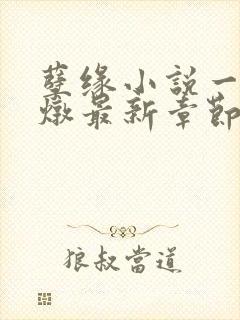 孽缘小說一
燉最新章節
狼叔當道